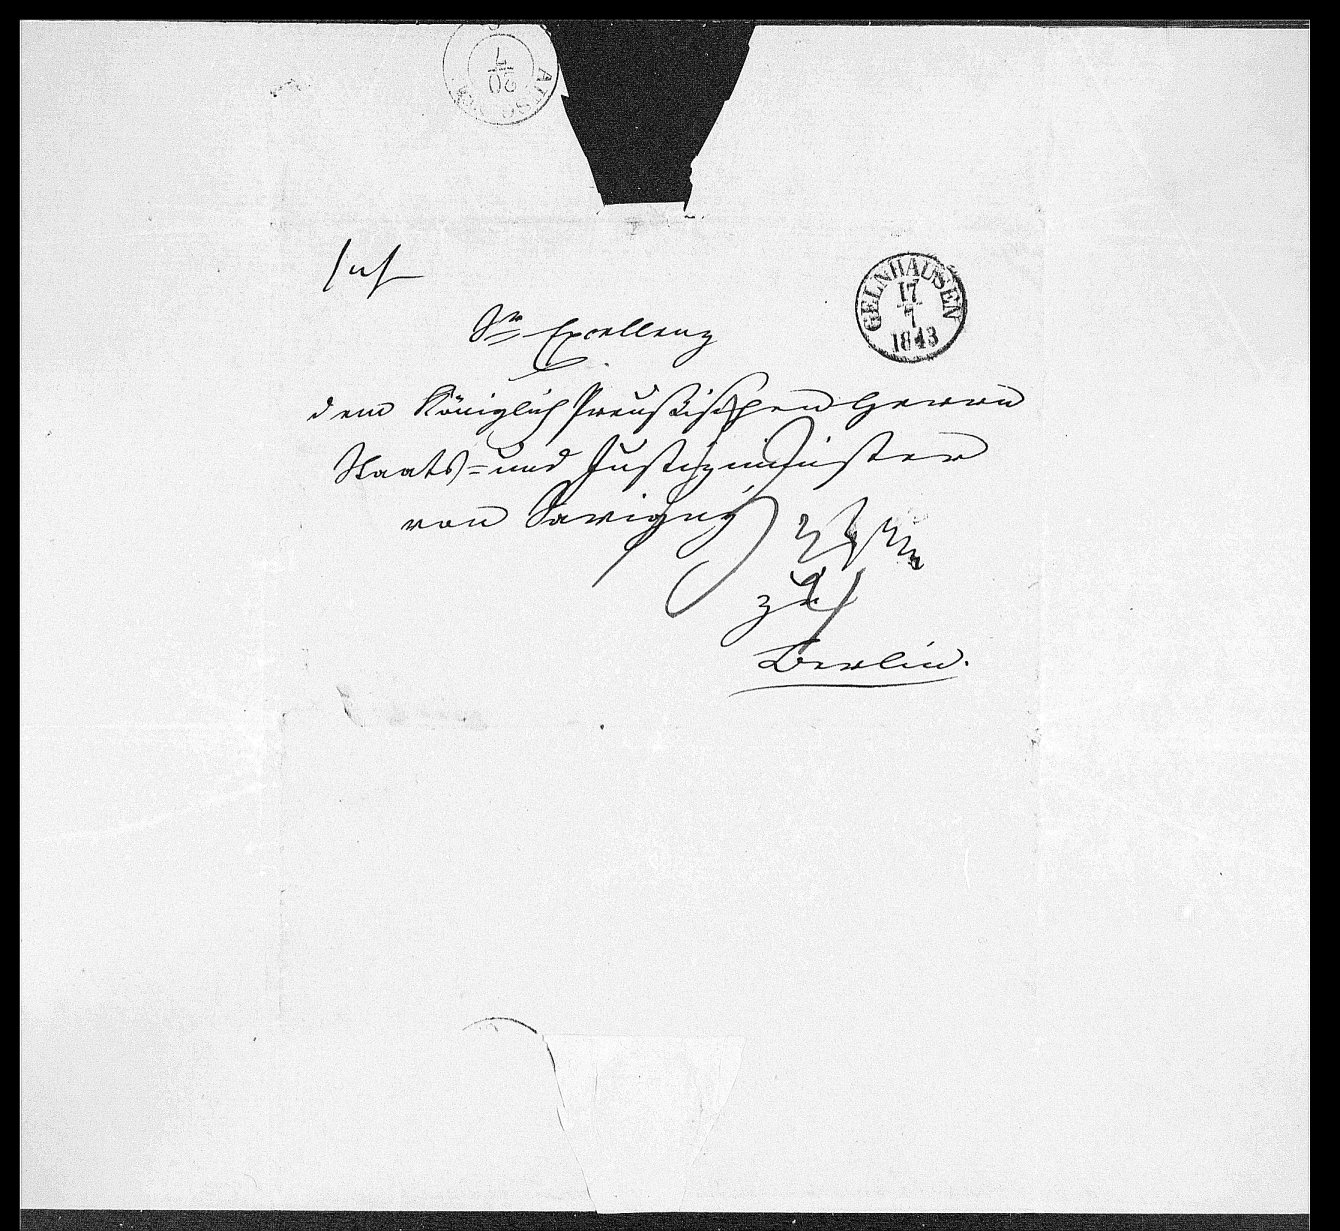 Sr Excellenz
dem Königlich Preußischen Herrn
Staats- und Justizminister
von Savigny
zu
Berlin.
GELNHAUSEN
17
7
1843
20
7